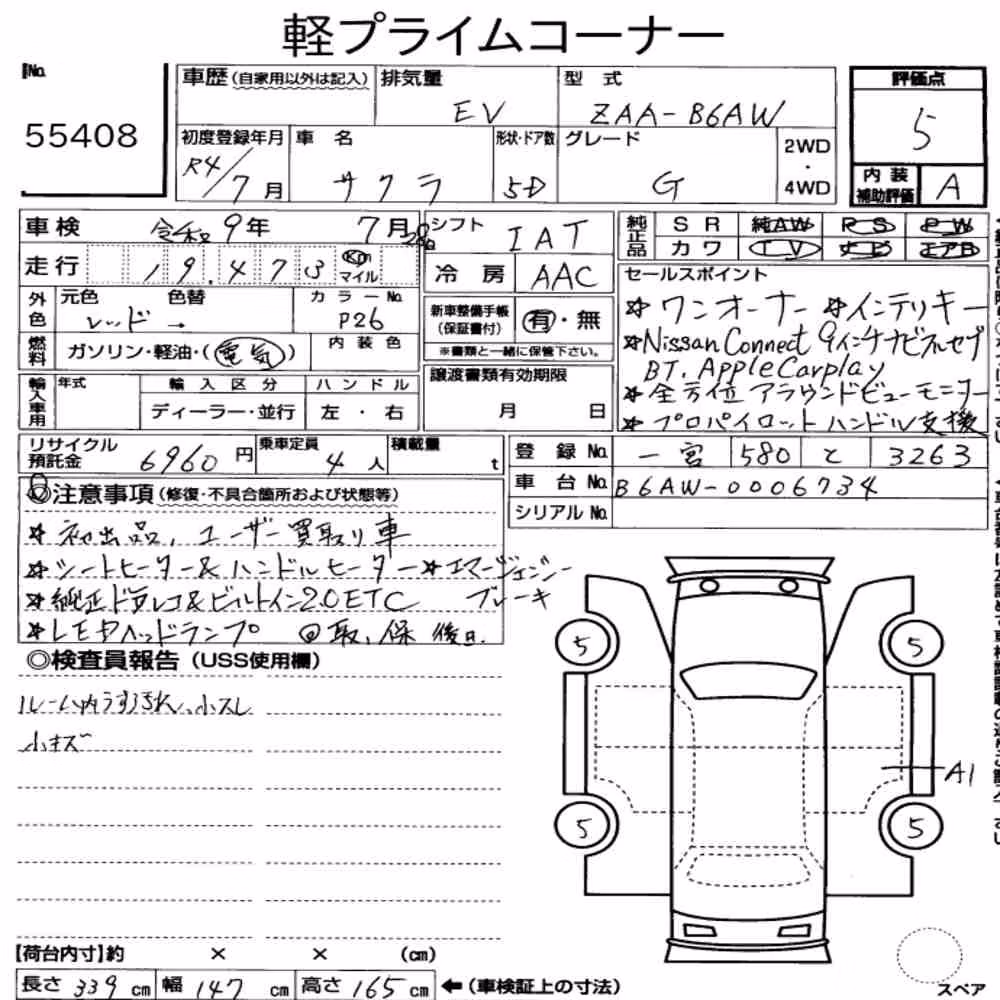 軽プライムコーナー
No. 55408
車歴(自家用以外は記入) 排気量 EV 型式 ZAA-B6AW 評価点 5
初度登録年月 R4/7月 車名 サクラ 形状・ドア数 5D グレード G 2WD・4WD 内装補助評価 A
車検 令和9年7月 シフト IAT 純正品 SR 純AW PS PW
走行 19,473 Km マイル 冷房 AAC カワ TV ナビ エアB
外色 元色 レッド 色替 → カラーNo. P26 新車整備手帳(保証書付) 有・無
※書類と一緒に保管下さい。
燃料 ガソリン・軽油・(電気) 内装色
輸入車用 年式 輸入区分 ディーラー・並行 ハンドル 左・右
譲渡書類有効期限 月 日
セールスポイント
☆ワンオーナー ☆インテリキー
☆Nissan Connect 9インチナビフルセグ
BT, AppleCarplay
☆全方位アラウンドビューモニター
☆プロパイロット ハンドル支援
リサイクル預託金 6960円 乗車定員 4人 積載量 t
登録No. 一宮 580 と 3263
車台No. B6AW-0006734
シリアルNo.
◎注意事項(修復・不具合箇所および状態等)
☆初出品、ユーザー買取り車
☆シートヒーター&ハンドルヒーター ☆エマージェンシーブレーキ
☆純正ドラレコ&ビルトイン2.0ETC
☆LEDヘッドランプ 回取、保 後日.
◎検査員報告(USS使用欄)
ルーム内うす汚れ、小スレ
小キズ
5 5
A1
5 5
【荷台内寸】約 × × (cm)
長さ 339 cm 幅 147 cm 高さ 165 cm ←(車検証上の寸法)
スペア